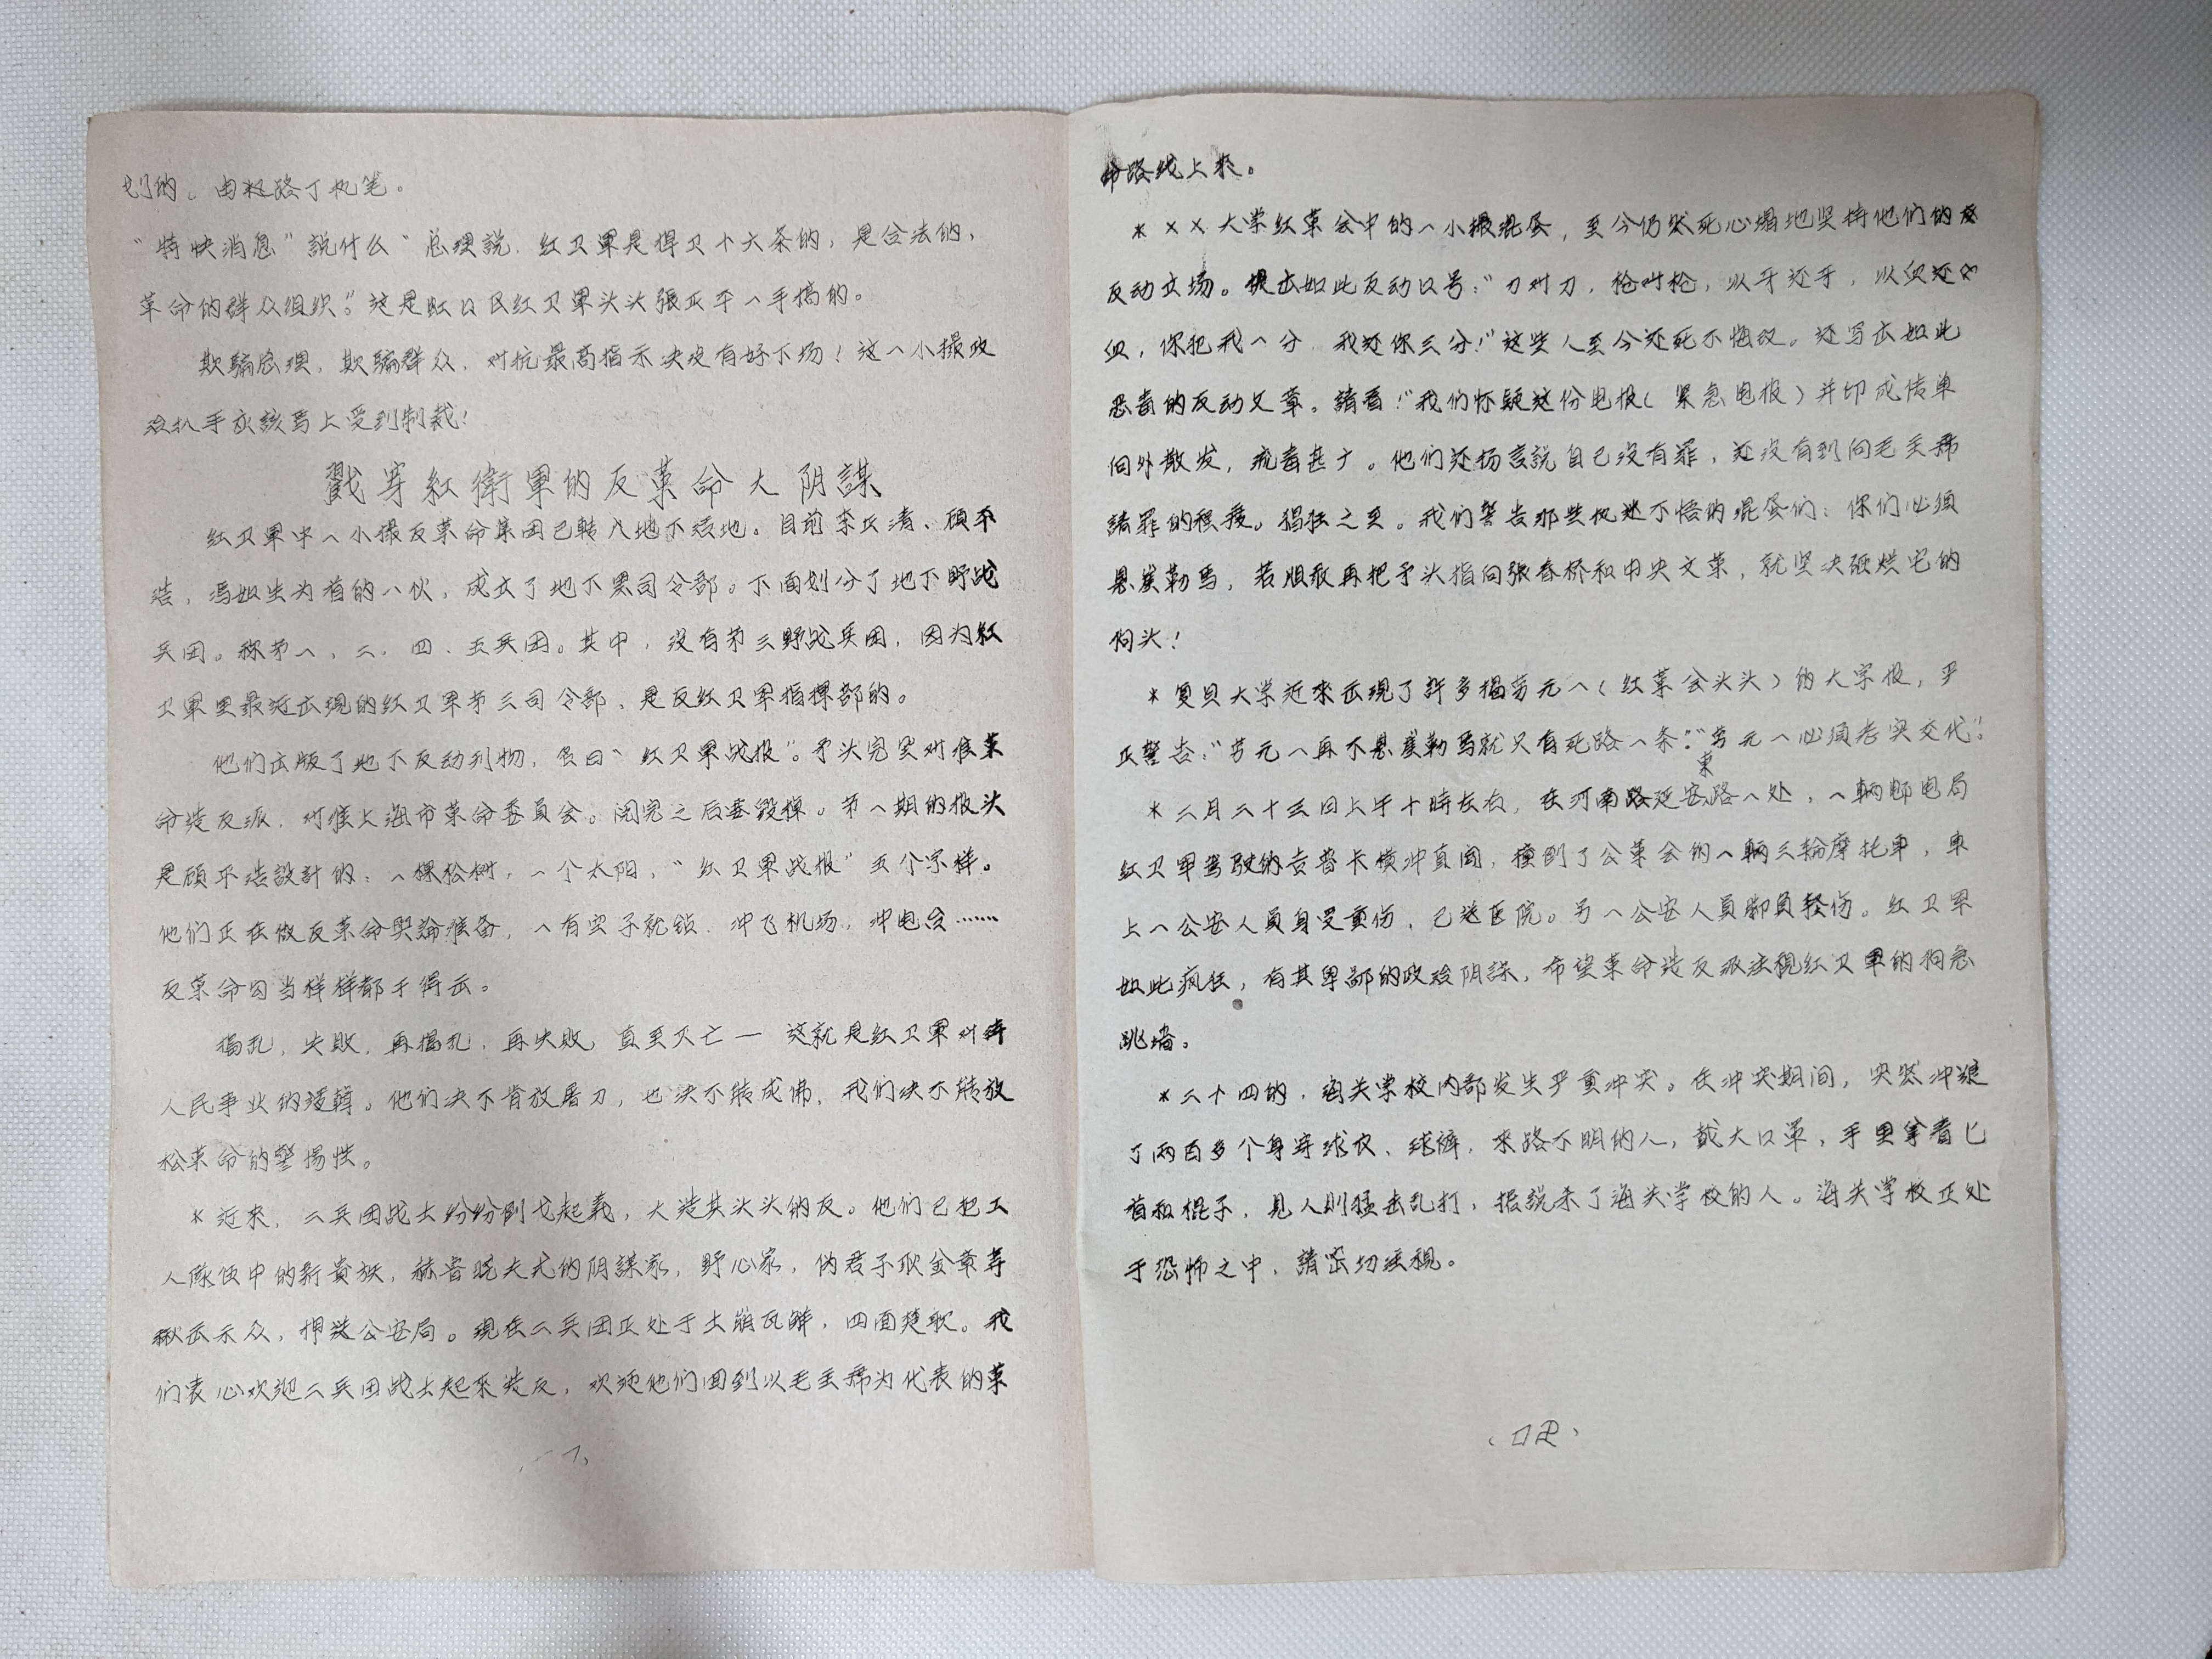 划的。由赵路丁执笔。
“特快消息”説什么“总理説，红卫軍是捍卫十六条的，是合法的，
革命的群众组织。”这是虹口区红卫軍头头張正平一手搞的。
欺騙总理，欺騙群众，对抗最高指示决没有好下场！这一小撮政
治扒手应該马上受到制裁！
戳穿紅衛軍的反革命大阴謀
红卫軍中一小撮反革命集团已转入地下活地。目前李正清、顾平
浩，馮如生为首的一伙，成立了地下黑司令部。下面划分了地下野战
兵团。称第一、二、四、五兵团。其中，没有第三野战兵团，因为紅
卫軍里最近出現的红卫軍第三司令部，是反红卫軍指揮部的。
他们出版了地下反动刊物，名曰“红卫軍战报”。矛头完全对准革
命造反派，对准上海市革命委員会。阅完之后要毀掉。第一期的报头
是顾平浩設計的：一棵松树，一个太阳，“红卫軍战报”五个字样。
他们正在做反革命輿論准备，一有空子就钻，冲飞机场，冲电台……
反革命勾当样样都干得出。
捣乱，失败，再捣乱，再失败，直至灭亡— 这就是红卫軍对待
人民事业的邏輯。他们决不肯放屠刀，也决不能成佛，我们决不能放
松革命的警惕性。
* 近来，二兵团战士纷纷倒戈起義，大造其头头的反。他们已把工
人隊伍中的新貴族，赫鲁晓夫式的阴謀家，野心家，伪君子耿金章等
揪出示众，押送公安局。現在二兵团正处于土崩瓦解，四面楚歌。我
们衷心欢迎二兵团战士起来造反，欢迎他们回到以毛主席为代表的革
命路线上来。
* ××大学红革会中的一小撮混蛋，至今仍然死心塌地坚持他们的反
反动立场。提出如此反动口号：“刀对刀，枪对枪，以牙还牙，以血还
血，你犯我一分，我还你三分！”这些人至今还死不悔改。还写出如此
恶毒的反动文章。請看：“我们怀疑这份电报（緊急电报）并印成传单
向外散发，流毒甚广。他们还扬言説自己没有罪，还没有到向毛主席
請罪的程度。猖狂之至。我们警告那些执迷不悟的混蛋们：你们必须
悬崖勒马，若胆敢再把矛头指向張春桥和中央文革，就坚决砸烂它的
狗头！
* 复旦大学近来出現了許多揭劳元一（红革会头头）的大字报，严
正警告：“劳元一再不悬崖勒马就只有死路一条！”“劳元一必须老实交代”！
東
* 二月二十三日上午十時左右，在河南路延安路一处，一輌邮电局
红卫軍驾駛的吉普卡横冲直闯，撞倒了公革会的一輌三輪摩托車，車
上一公安人員身受重伤，已送医院。另一公安人員脚負轻伤。红卫軍
如此疯狂，有其卑鄙的政治阴謀，希望革命造反派注視红卫軍的狗急
跳墙。
* 二十四的，海关学校内部发生严重冲突。在冲突期间，突然冲進
了两百多个身穿球衣、球裤，来路不明的人，戴大口罩，手里拿着匕
首和棍子，見人則猛击乱打，据説杀了海关学校的人。海关学校正处
于恐怖之中，請密切注視。